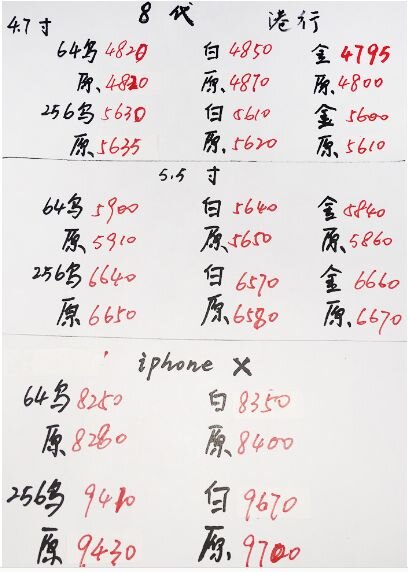 8 代 港行
4.7 寸
64乌 4820 白 4850 金 4795
原. 4820 原. 4870 原. 4800
256乌 5630 白 5610 金 5600
原. 5635 原. 5620 原. 5610
5.5 寸
64乌 5900 白 5640 金 5840
原. 5910 原. 5650 原. 5860
256乌 6640 白 6570 金 6660
原. 6650 原. 6580 原. 6670
iphone X
64乌 8250 白 8350
原. 8280 原. 8400
256乌 9410 白 9670
原. 9430 原. 9700